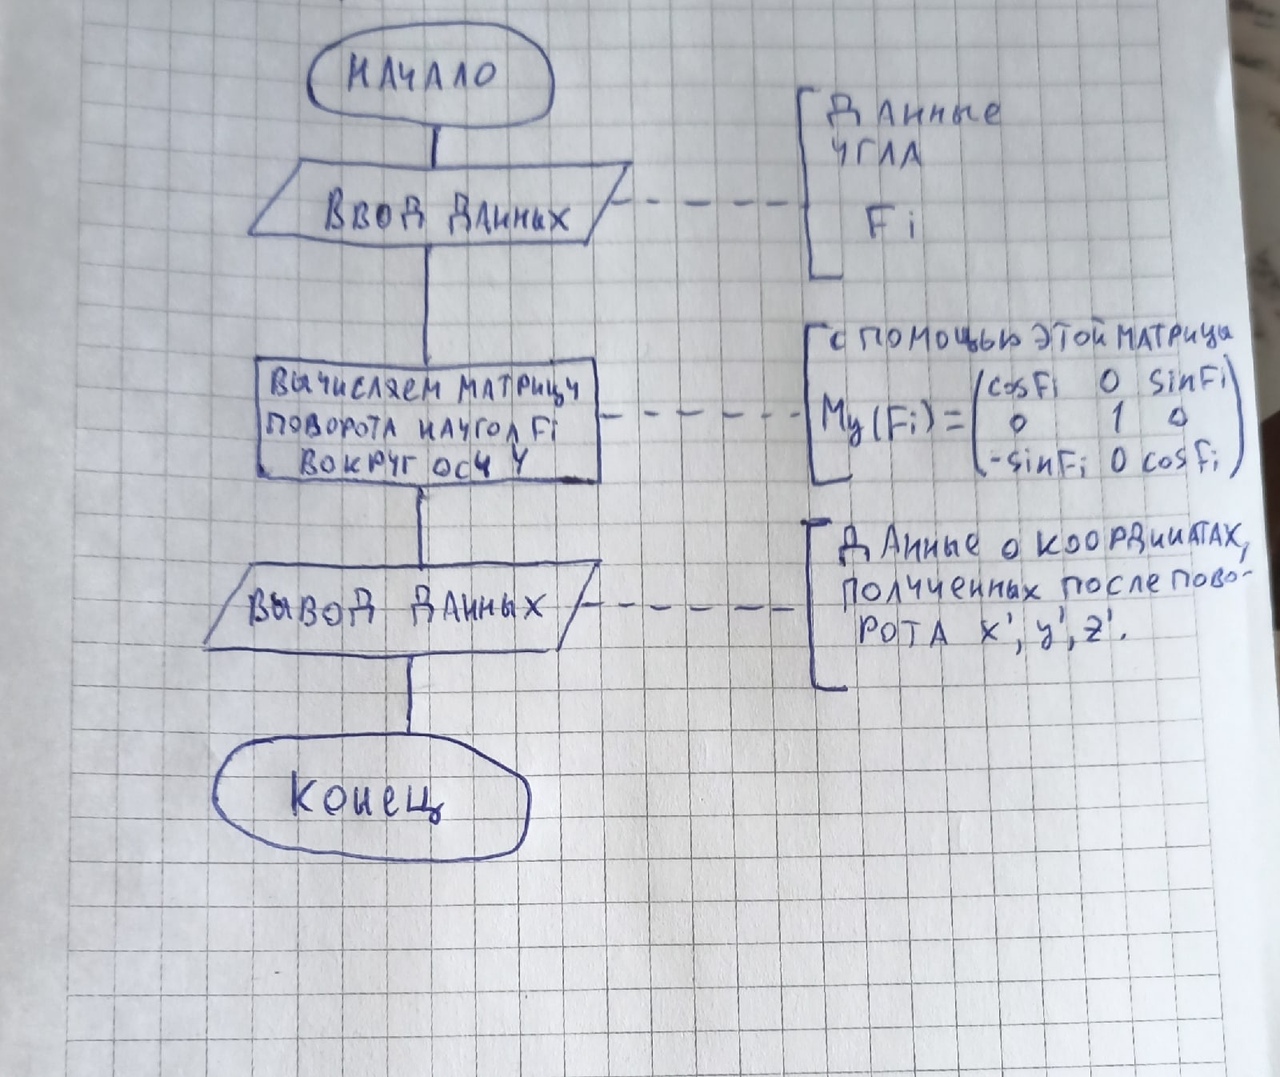 НАЧАЛО
ВВОД ДАННЫХ
ДАННЫЕ
УГЛА
Fi
ВЫЧИСЛЯЕМ МАТРИЦУ
ПОВОРОТА НА УГОЛ Fi
ВОКРУГ ОСИ Y
С ПОМОЩЬЮ ЭТОЙ МАТРИЦЫ
My(Fi) = (cosFi 0 sinFi
0 1 0
-sinFi 0 cosFi)
ВЫВОД ДАННЫХ
ДАННЫЕ О КООРДИНАТАХ,
ПОЛУЧЕННЫХ ПОСЛЕ ПОВО-
РОТА x', y', z'.
КОНЕЦ